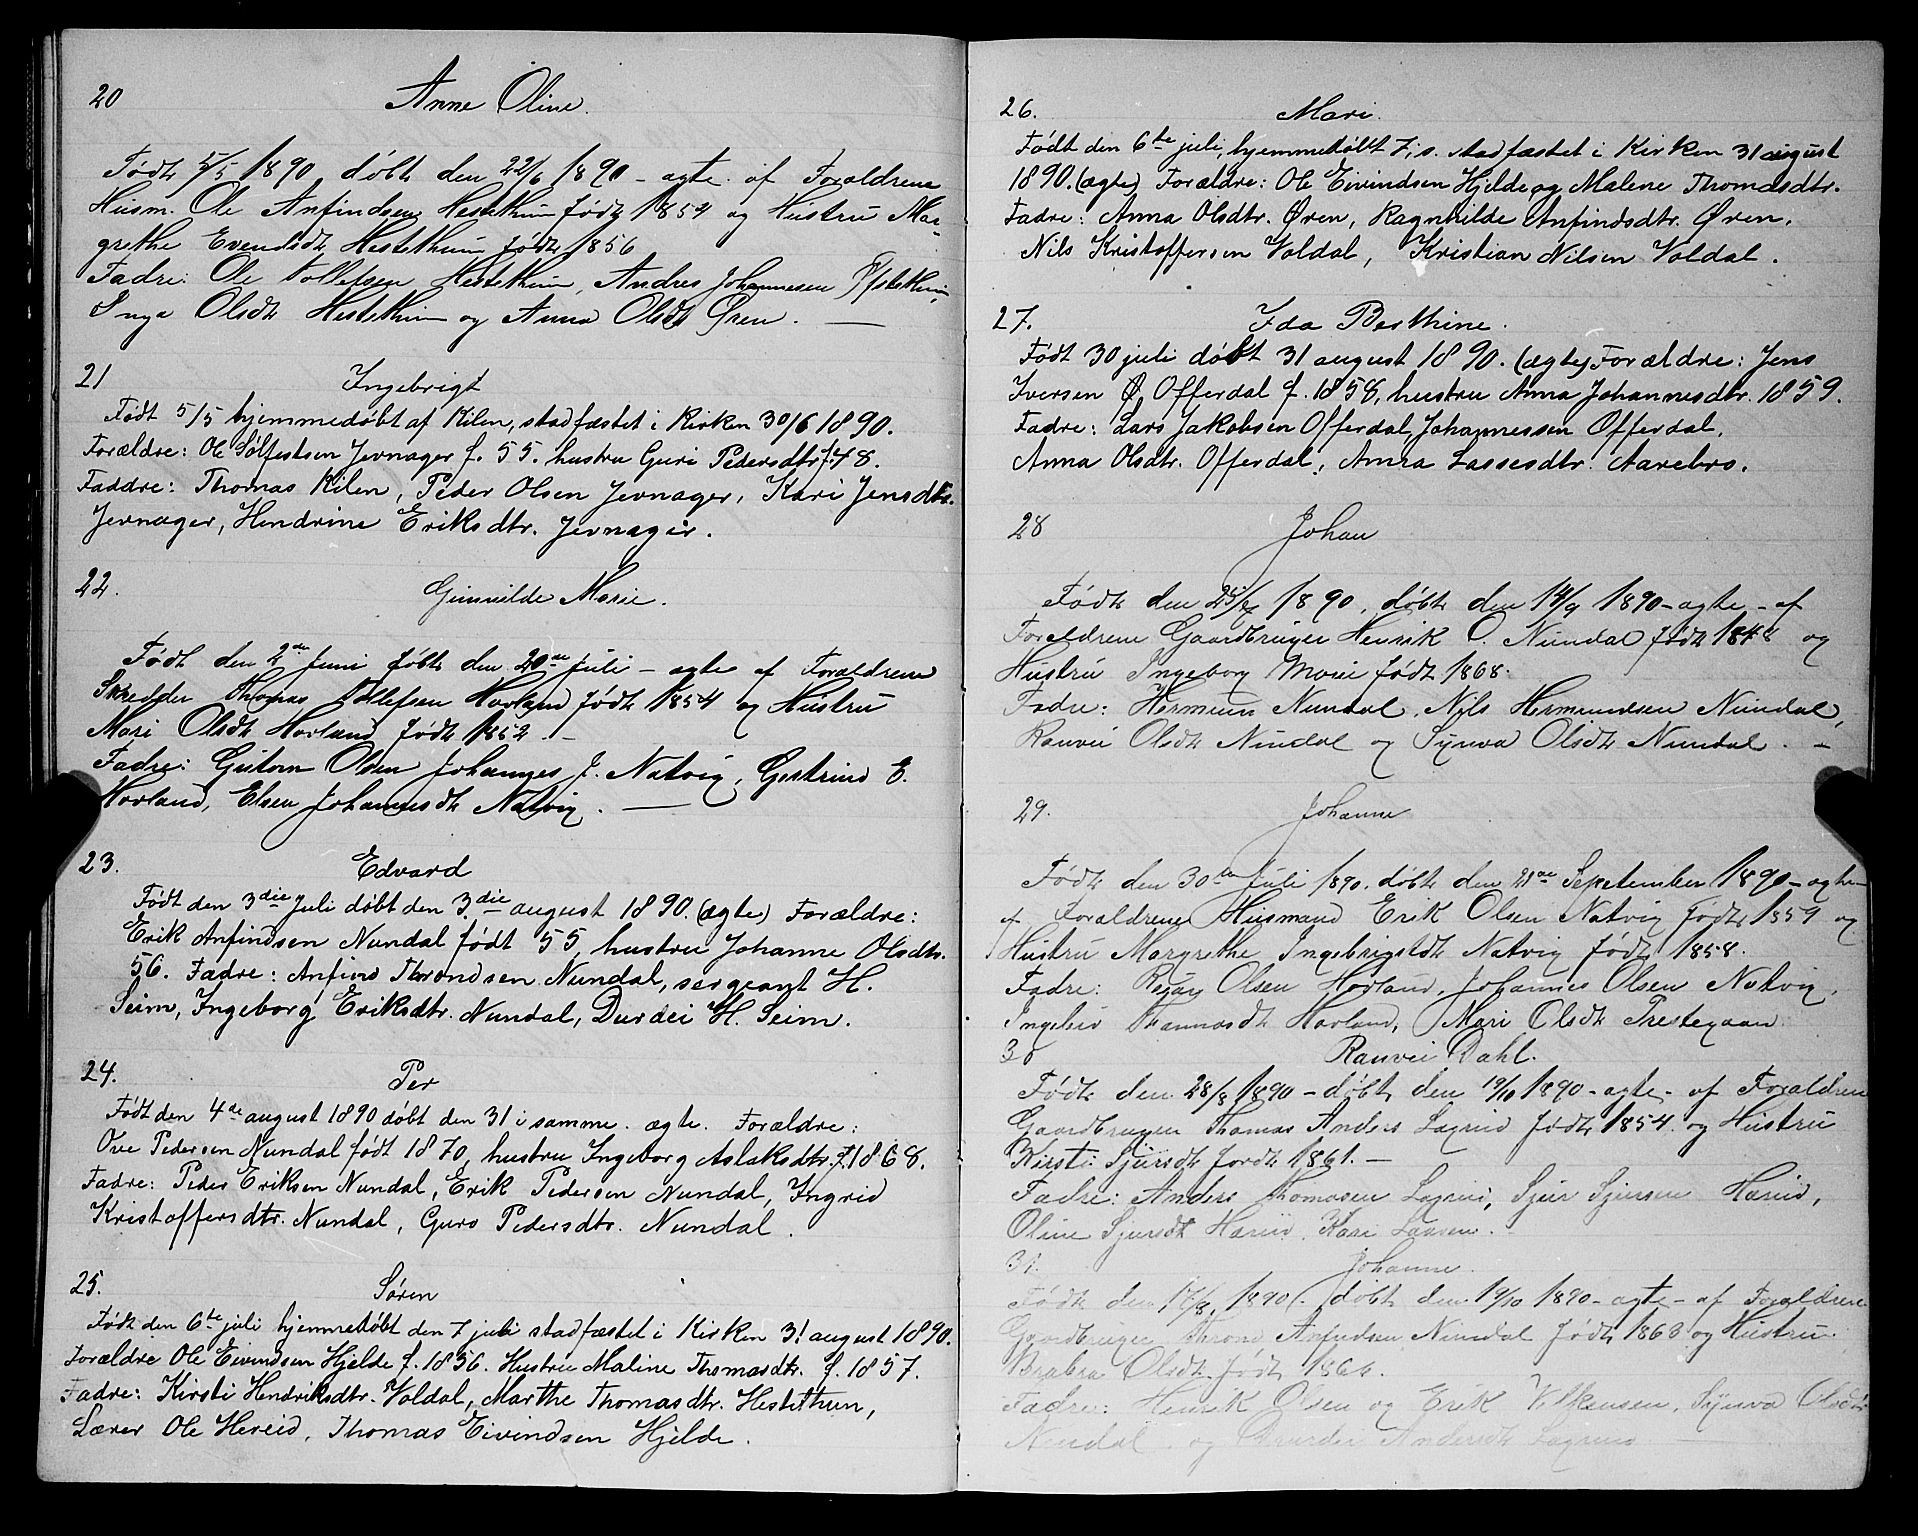 20 Anne Oline.
Født 5/5 1890 døbt den 22/6 1890 - ægte af Forældrene
Husm. Ole Anfindsen Hestethun født 1854 og Hustru Mar-
grethe Evendsdt Hestethun født 1856
Fadre: Ole Tollefsen Hestethun, Andres Johannesen Hestethun,
Inga Olsdt Hestethun og Anna Olsdt Øren. —
21 Ingebrigt
Født 5/5 hjemmedøbt af Kilen, stadfæstet i Kirken 30/6 1890.
Forældre: Ole Sølfestsen Jevnager f. 55. hustru Guri Pedersdtr f. 48.
Faddre: Thomas Kilen, Peder Olsen Jevnager, Kari Jensdtr.
Jevnager, Hendrine Eriksdtr. Jevnager.
22. Gunnilde Marie.
Født den 2de Juni døbt den 20de Juli - ægte af Forældrene
Skredder Thomas Tollefsen Hovland født 1854 og Hustru
Mari Olsdt Hovland født 1852. -
Fadre: Gutorm Olsen Johannes J. Natvig, Gjertrud E.
Hovland, Elsen Johannesdt Natvig. —
23. Edvard
Født den 3die Juli døbt den 3.die august 1890. (ægte) Forældre:
Erik Anfindsen Nundal født 55, hustru Johanne Olsdtr.
56. Fadre: Anfind Throndsen Nundal, sergeant H.
Seim, Ingeborg Eriksdtr. Nundal, Durdei H. Seim.
24. Per
Født den 4de august 1890 døbt den 31 i samme. ægte. Forældre:
Ove Pedersen Nundal født 1870, hustru Ingeborg Aslaksdtr. f. 1868.
Fadre: Peder Eriksen Nundal, Erik Pedersen Nundal, Ingrid
Kristoffersdtr. Nundal, Guro Pedersdtr. Nundal.
25. Søren
Født den 6te juli hjemmedøbt den 7 juli stadfæstet i Kirken 31 august 1890.
Forældre Ole Eivindsen Hjelde f. 1856. Hustru Maline Thomasdtr. f. 1857.
Fadre: Kirsti Hendriksdtr. Voldal, Marthe Thomasdtr. Hestethun,
Lærer Ole Hereid, Thomas Eivindsen Hjelde.
26. Mari.
Født den 6te juli, hjemmedøbt 7. i s. stadfæstet i Kirken 31 august
1890. (ægte) Forældre: Ole Eivindsen Hjelde og Malene Thomasdtr.
Fadre: Anna Olsdtr. Øren, Ragnhilde Anfindsdtr. Øren.
Nils Kristoffersen Voldal, Kristian Nilsen Voldal.
27. Ida Berthine.
Født 30 juli døbt 31 august 1890. (ægte) Forældre: Jens
Iversen Ø. Offerdal f. 1858, hustru Anna Johannesdtr. 1859.
Fadre: Lars Jakobsen Offerdal, Johannessen Offerdal.
Anna Olsdtr. Offerdal, Anna Lassesdtr. Aarebro.
28 Johan
Født den 1890, døbt den 14/9 1890 - ægte - af
Forældrene Gaardbruger Henrik O. Nundal født 1848 og
Hustru Ingeborg Marie født 1868.
Fadre: Hermund Nundal, Nils Hermundsen Nundal,
Ranvei Olsdt Nundal og Synva Olsdt Nundal. -
29. Johanne
Født den 30te Juli 1890. døbt den 21de September 1890 - ægte
af Forældrene Husmand Erik Olsen Natvig født 1859 og
Hustru Margrethe Ingebrigtsdt Natvig født 1858.
Fadre: Olsen Hovland, Johannes Olsen Natvig,
Thomasdt Hovland, Mari Olsdt Prestegaan
30 Ranvei Dahl.
Født den 28/8 1890 - døbt den 19/10 1890 - ægte - af Forældrene
Gaardbruger Thomas Anders Lægrind født 1854. og Hustru
Kirsti Sjursdt fordt 1861. -
Fadre: Anders Thomasen Lægrind, Sjur Sjursen Hærud,
Oline Sjursdt Hærud, Kari Larsen.
31. Johanne.
Født den 17/8 1890. døbt den 19/10 1890 - ægte - af Forældrene
Gaardbruger Thrond Anfindsen Nundal født 1863 og Hustru
Brabra Olsdt født 1866.
Fadrer: Henrik Olsen og Erik Vilhemsen, Synva Olsdtr
Nundal og Durdei Andersdt Lægrind —